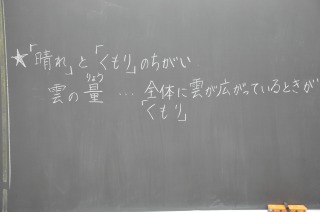 ★「晴れ」と「くもり」のちがい
雲の量 … 全体に雲が広がっているときが
りょう
「くもり」